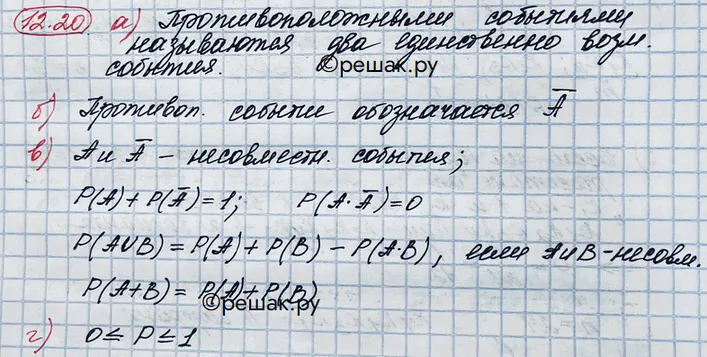 12.20 а) Противоположными событиями
называются два единственно возм.
события. ©решак.ру
б) Противоп. событие обозначается A̅
в) A и A̅ – несовместн. события;
P(A) + P(A̅) = 1; P(A·A̅) = 0
P(A∪B) = P(A) + P(B) − P(A·B), если A и B – несовм.
P(A+B) = P(A) + P(B)
©решак.ру
г) 0 ≤ P ≤ 1